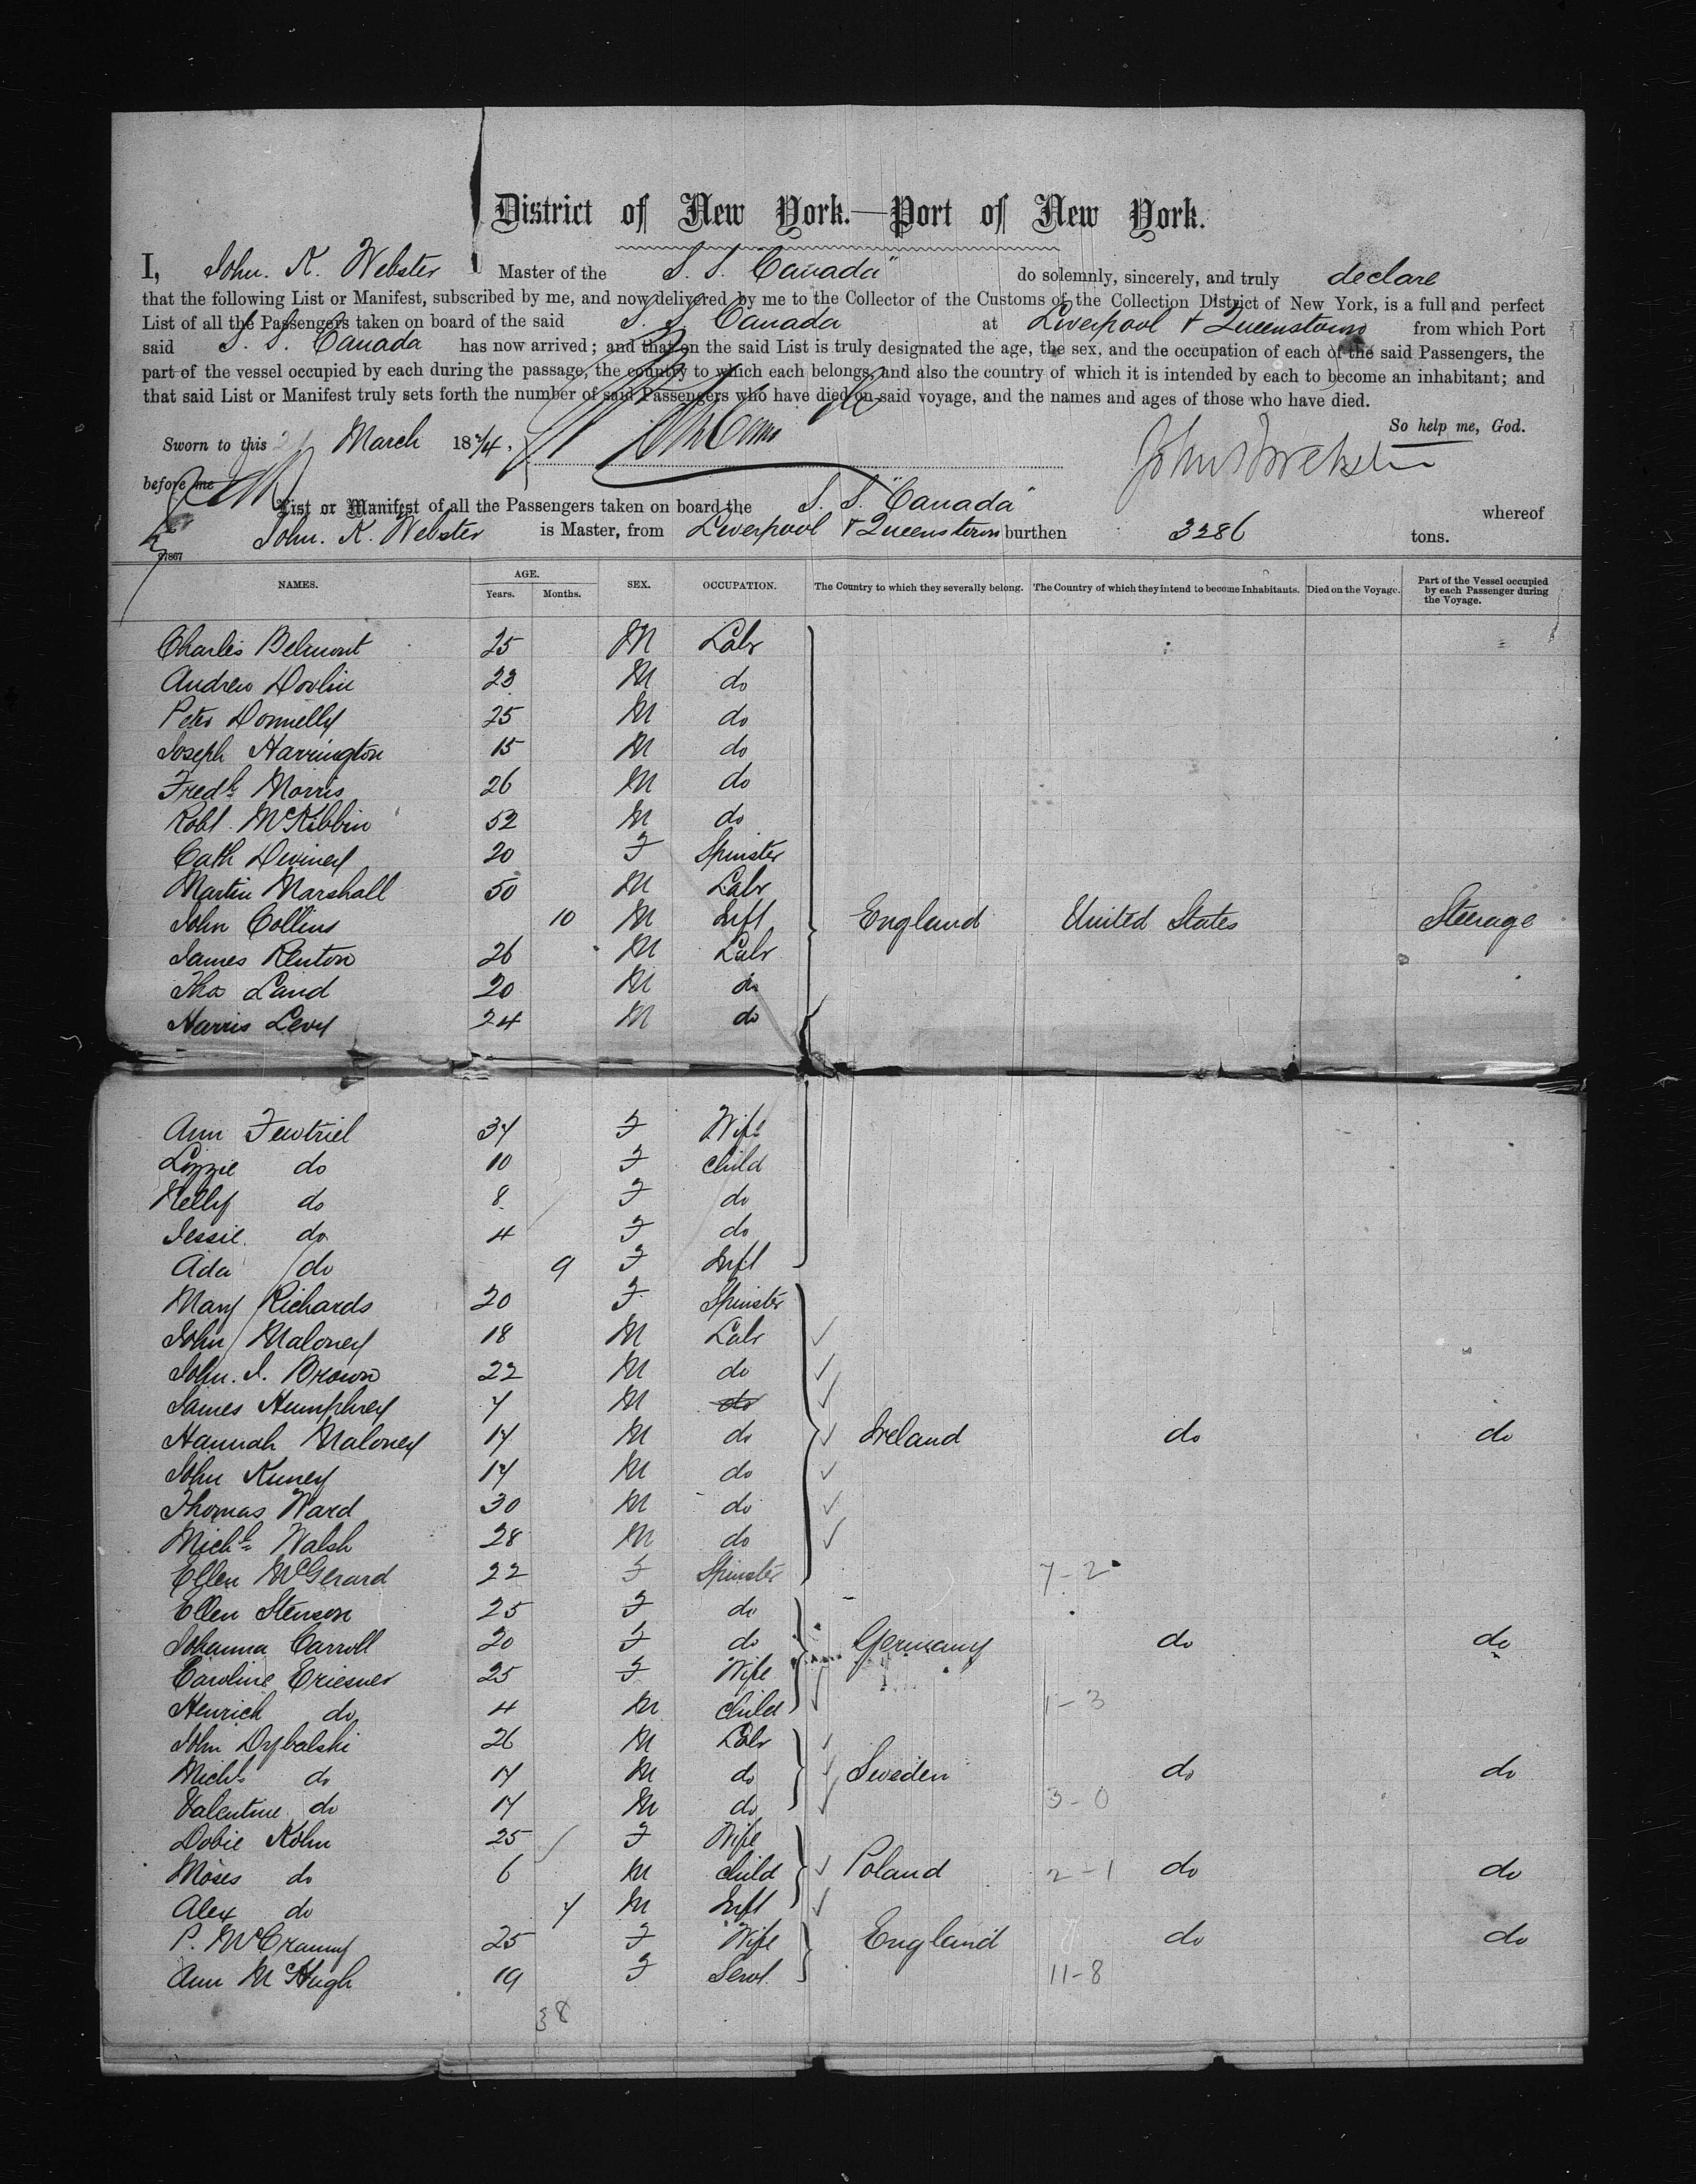 District of New York.—Port of New York.
I, John. K. Webster Master of the S. S. "Canada" do solemnly, sincerely, and truly declare
that the following List or Manifest, subscribed by me, and now delivered by me to the Collector of the Customs of the Collection District of New York, is a full and perfect
List of all the Passengers taken on board of the said S. S. Canada at Liverpool & Queenstown from which Port
said S. S. Canada has now arrived; and that on the said List is truly designated the age, the sex, and the occupation of each of the said Passengers, the
part of the vessel occupied by each during the passage, the country to which each belongs, and also the country of which it is intended by each to become an inhabitant; and
that said List or Manifest truly sets forth the number of said Passengers who have died on said voyage, and the names and ages of those who have died.
So help me, God.
Sworn to this March 1874.
John K Webster
before me
List or Manifest of all the Passengers taken on board the S. S. "Canada" whereof
John. K. Webster is Master, from Liverpool & Queenstown burthen 3286 tons.
27867
NAMES. AGE. Years. Months. SEX. OCCUPATION. The Country to which they severally belong. The Country of which they intend to become Inhabitants. Died on the Voyage. Part of the Vessel occupied by each Passenger during the Voyage.
Charles Belmont 25 M Labr
Andrew Dovlin 23 M do
Peter Donnelly 25 M do
Joseph Harrington 15 M do
Fredk Morris 26 M do
Robt. McKibbin 52 M do
Cath Deviney 20 F Spinster
Martin Marshall 50 M Labr
John Collins 10 M Inft England United States Steerage
James Renton 26 M Labr
Thos Land 20 M do
Harris Levy 24 M do
Ann Fewtriel 37 F Wife
Lizzie do 10 F child
Nelly do 8 F do
Jessie do 4 F do
Ada do 9 F Inft
Mary Richards 20 F Spinster
John Maloney 18 M Labr
John. J. Brown 22 M do
James Humphrey 7 M do
Hannah Maloney 17 M do Ireland do do
John Kuney 17 M do
Thomas Ward 30 M do
Michl Walsh 28 M do
Ellen McGerard 22 F Spinster 7-2
Ellen Stenson 25 F do
Johanna Carroll 20 F do Germany do do
Caroline Eriesner 25 F Wife
Henrich do 4 M child 1-3
John Dybalski 26 M Labr
Michl do 17 M do Sweden do do
Valentine do 17 M do 3-0
Dobie Kohn 25 F Wife
Moses do 6 M child Poland 2-1 do do
Alex do 7 M Inft
P. McCranny 25 F Wife England do do
Ann McHugh 19 F Servt. 11-8
38